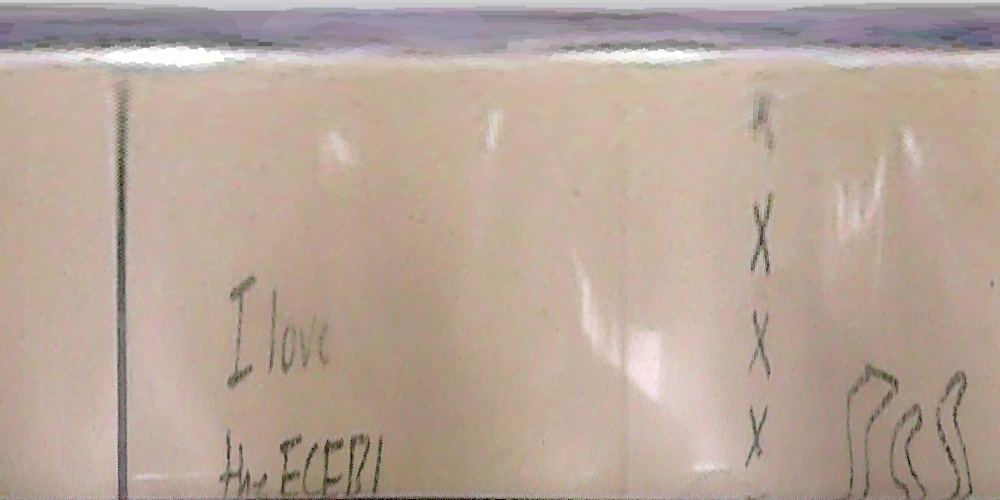 I love
the ECEB!
X
X
X